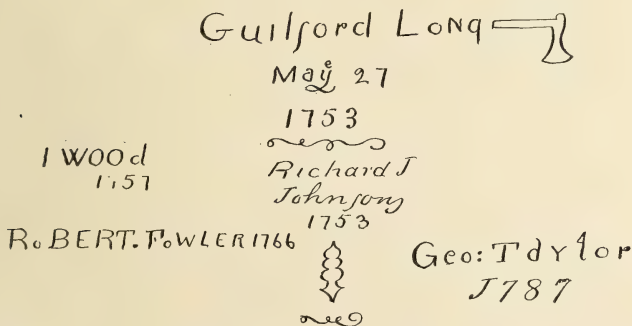 Guilford Long
Maÿe 27
1753
I WOOd
1157
Richard J
Johnson
1753
RoBERT. FoWLER 1766
Geo: Taylor
J787